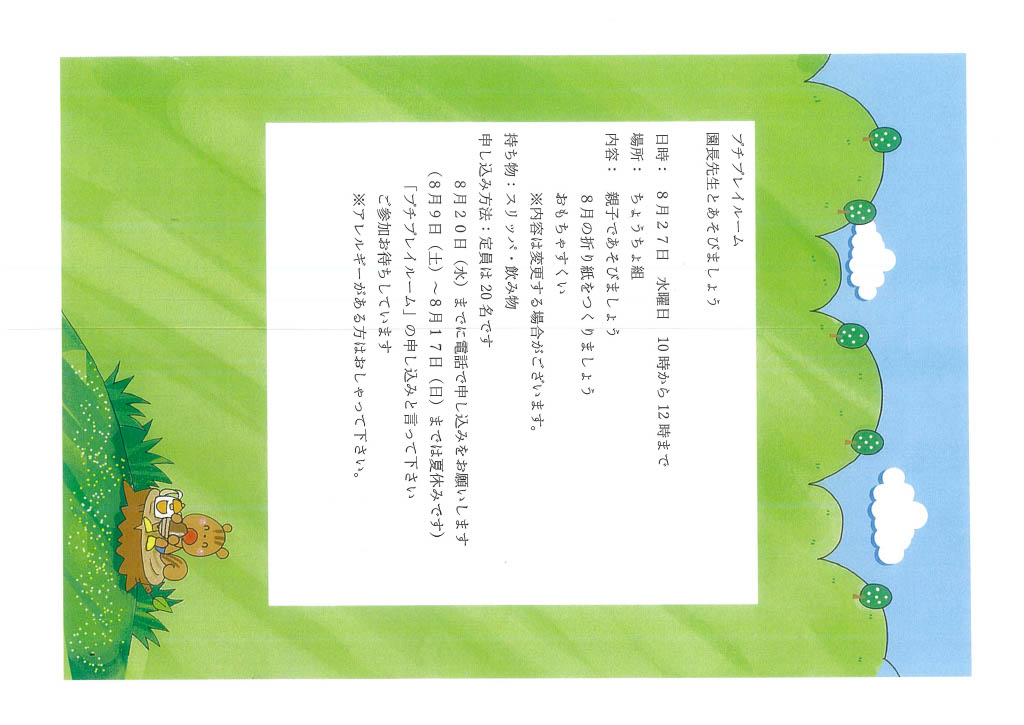 プチプレイルーム
園長先生とあそびましょう
日時： 8月27日 水曜日 10時から12時まで
場所： ちょうちょ組
内容： 親子であそびましょう
8月の折り紙をつくりましょう
おもちゃすくい
※内容は変更する場合がございます。
持ち物：スリッパ・飲み物
申し込み方法：定員は20名です
8月20日（水）までに電話で申し込みをお願いします
（8月9日（土）～8月17日（日）までは夏休みです）
「プチプレイルーム」の申し込みと言って下さい
ご参加お待ちしています
※アレルギーがある方はおしゃって下さい。